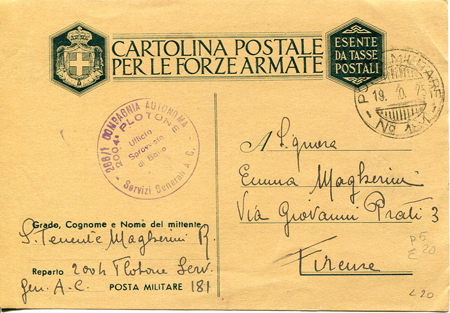 CARTOLINA POSTALE
PER LE FORZE ARMATE
ESENTE
DA TASSE
POSTALI
POSTA MILITARE
19. 10.
No 181
286/1 COMPAGNIA AUTONOMA
2004ª PLOTONE
Ufficio
di Base
Servizi Generali A. C.
Signora
Emma Magherini
Via Giovanni Prati 3
Firenze
Grado, Cognome e Nome del mittente
S. Tenente Magherini R.
Reparto 2004 Plotone Serv.
Gen. A.C. POSTA MILITARE 181
p5
£20
£20